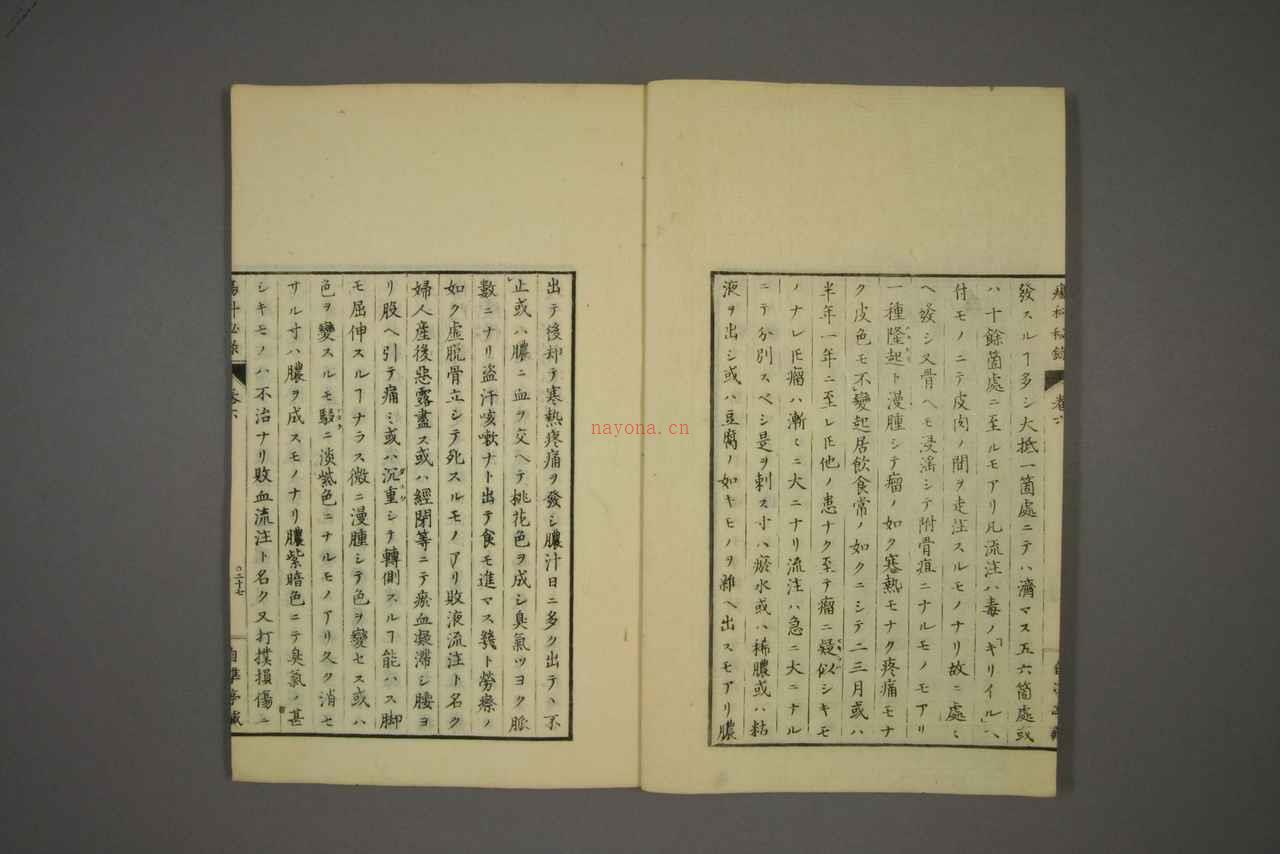 瘍科秘錄
卷六
發スルヿ多シ大抵一箇處ニテハ濟マス五六箇處或
ハ十餘箇處ニ至ルモアリ凡流注ハ毒ノ「キリイル」ヘ
付モノニテ皮肉ノ間ヲ走注スルモノナリ故ニ處ミ
ヘ發シ又骨ヘモ浸淫シテ附骨疽ニナルモノモアリ
一種隆起ト漫腫シテ瘤ノ如ク寒熱モナク疼痛モナ
ク皮色モ不變起居飲食常ノ如クニシテ二三月或ハ
半年一年ニ至レ𪜈他ノ患ナク至テ瘤ニ疑似シキモ
ノナレ𪜈瘤ハ漸ミニ大ニナリ流注ハ急ニ大ニナル
ニテ分別スベシ是ヲ刺ス寸ハ瘀水或ハ稀膿或ハ粘
液ヲ出シ或ハ豆腐ノ如キモノヲ雜ヘ出スモアリ膿
出テ後却テ寒熱疼痛ヲ發シ膿汁日ニ多ク出テヽ不
止或ハ膿ニ血ヲ交ヘテ桃花色ヲ成シ臭氣ツヨク脈
數ニナリ盜汗咳嗽ナト出テ食モ進マス幾ト勞瘵ノ
如ク虛脫骨立シテ死スルモノアリ敗液流注ト名ク
婦人産後惡露盡ス或ハ經閉等ニテ瘀血凝滯シ腰ヨ
リ股ヘ引テ痛ミ或ハ沉重シテ轉側スルヿ能ハス脚
モ屈伸スルヿナラス微ニ漫腫シテ色ヲ變セス或ハ
色ヲ變スルモ駁ニ淡紫色ニナルモノアリ久ク消セ
サル寸ハ膿ヲ成スモノナリ膿紫暗色ニテ臭氣ノ甚
シキモノハ不治ナリ敗血流注ト名ク又打撲損傷ニ
二十七
nayona.cn